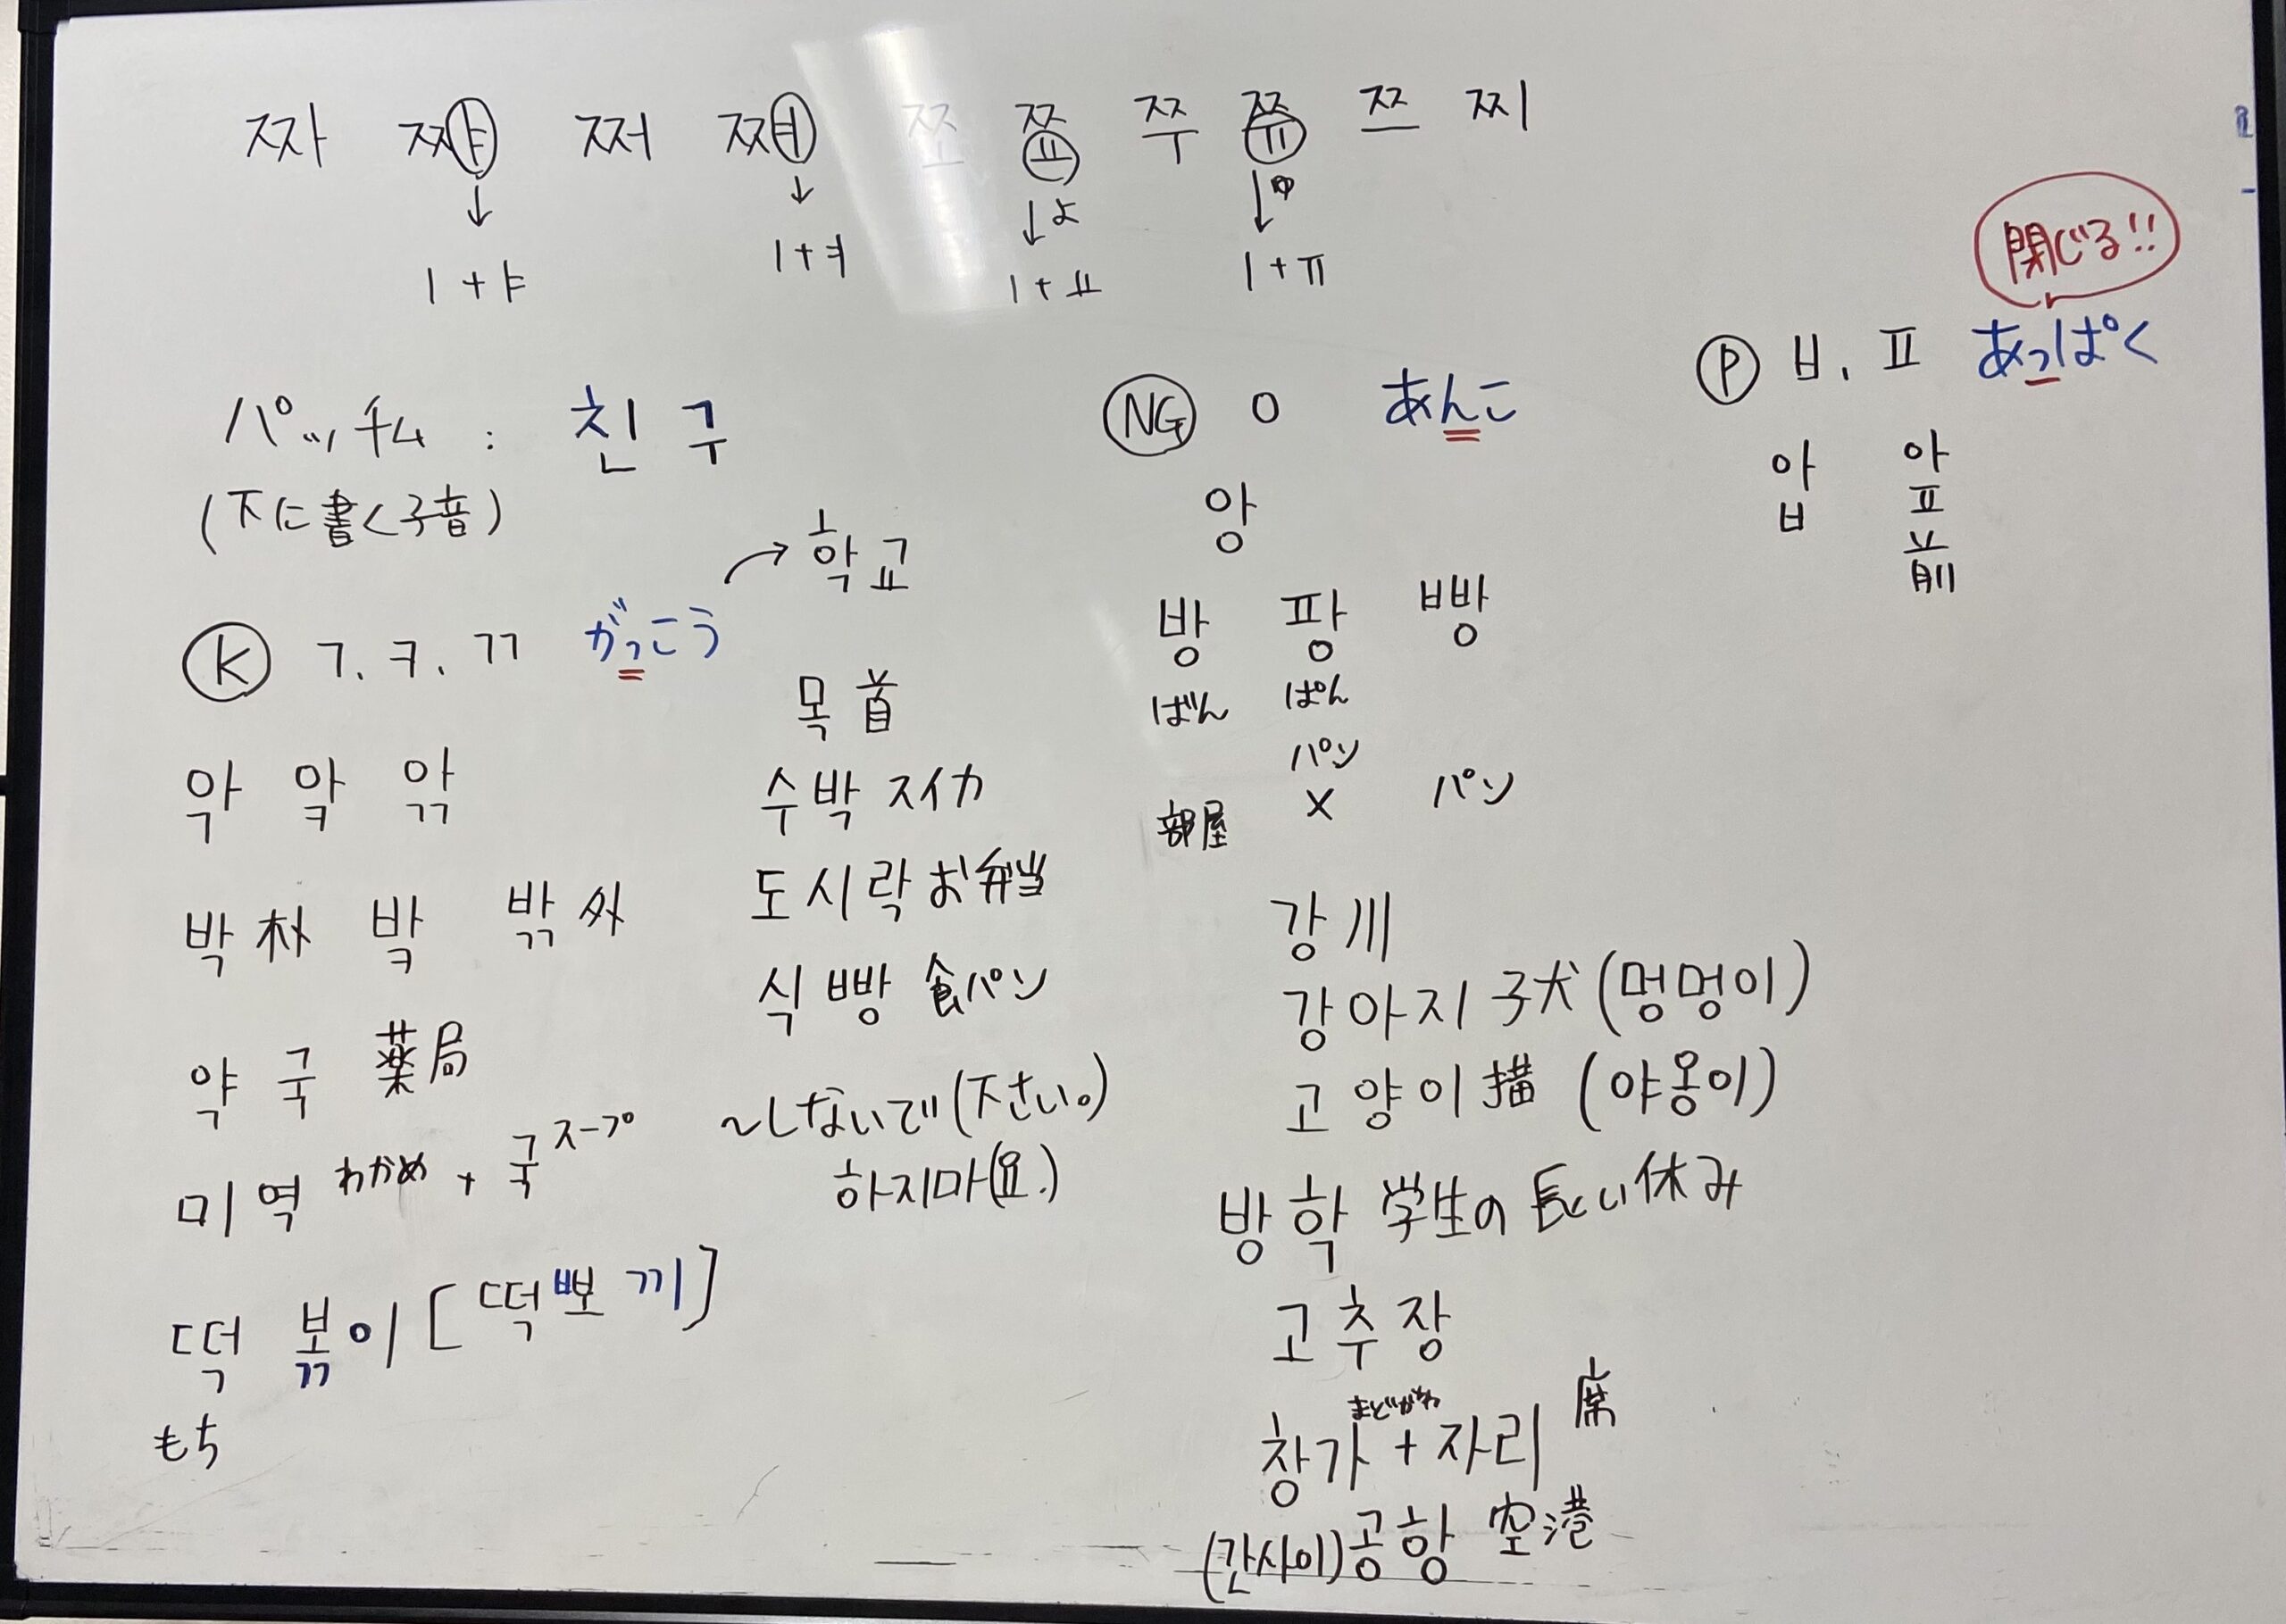 짜 쨔 쩌 쪄 쪼 쬬 쭈 쮸 쯔 찌
↓ ↓ ↓よ ↓ゆ
ㅣ+ㅑ ㅣ+ㅕ ㅣ+ㅛ ㅣ+ㅠ
パッチム : 친구
(下に書く子音)
Ⓚ ㄱ, ㅋ, ㄲ がっこう → 학교
악 앜 앆
박 朴 밬 밖 外
약국 薬局
미역 わかめ + 국 スープ
떡볶이 [떡뽀끼]
もち
목 首
수박 スイカ
도시락 お弁当
식빵 食パン
〜しないで(下さい。)
하지마(요.)
NG ㅇ あんこ
앙
방 팡 빵
ばん ぱん
パン
部屋 × パン
강 川
강아지 子犬 (멍멍이)
고양이 描 (야옹이)
방학 学生の長い休み
고추장
まどがわ
창가 + 자리 席
(간사이)공항 空港
閉じる!!
Ⓟ ㅂ, ㅍ あっぱく
압 앞
前